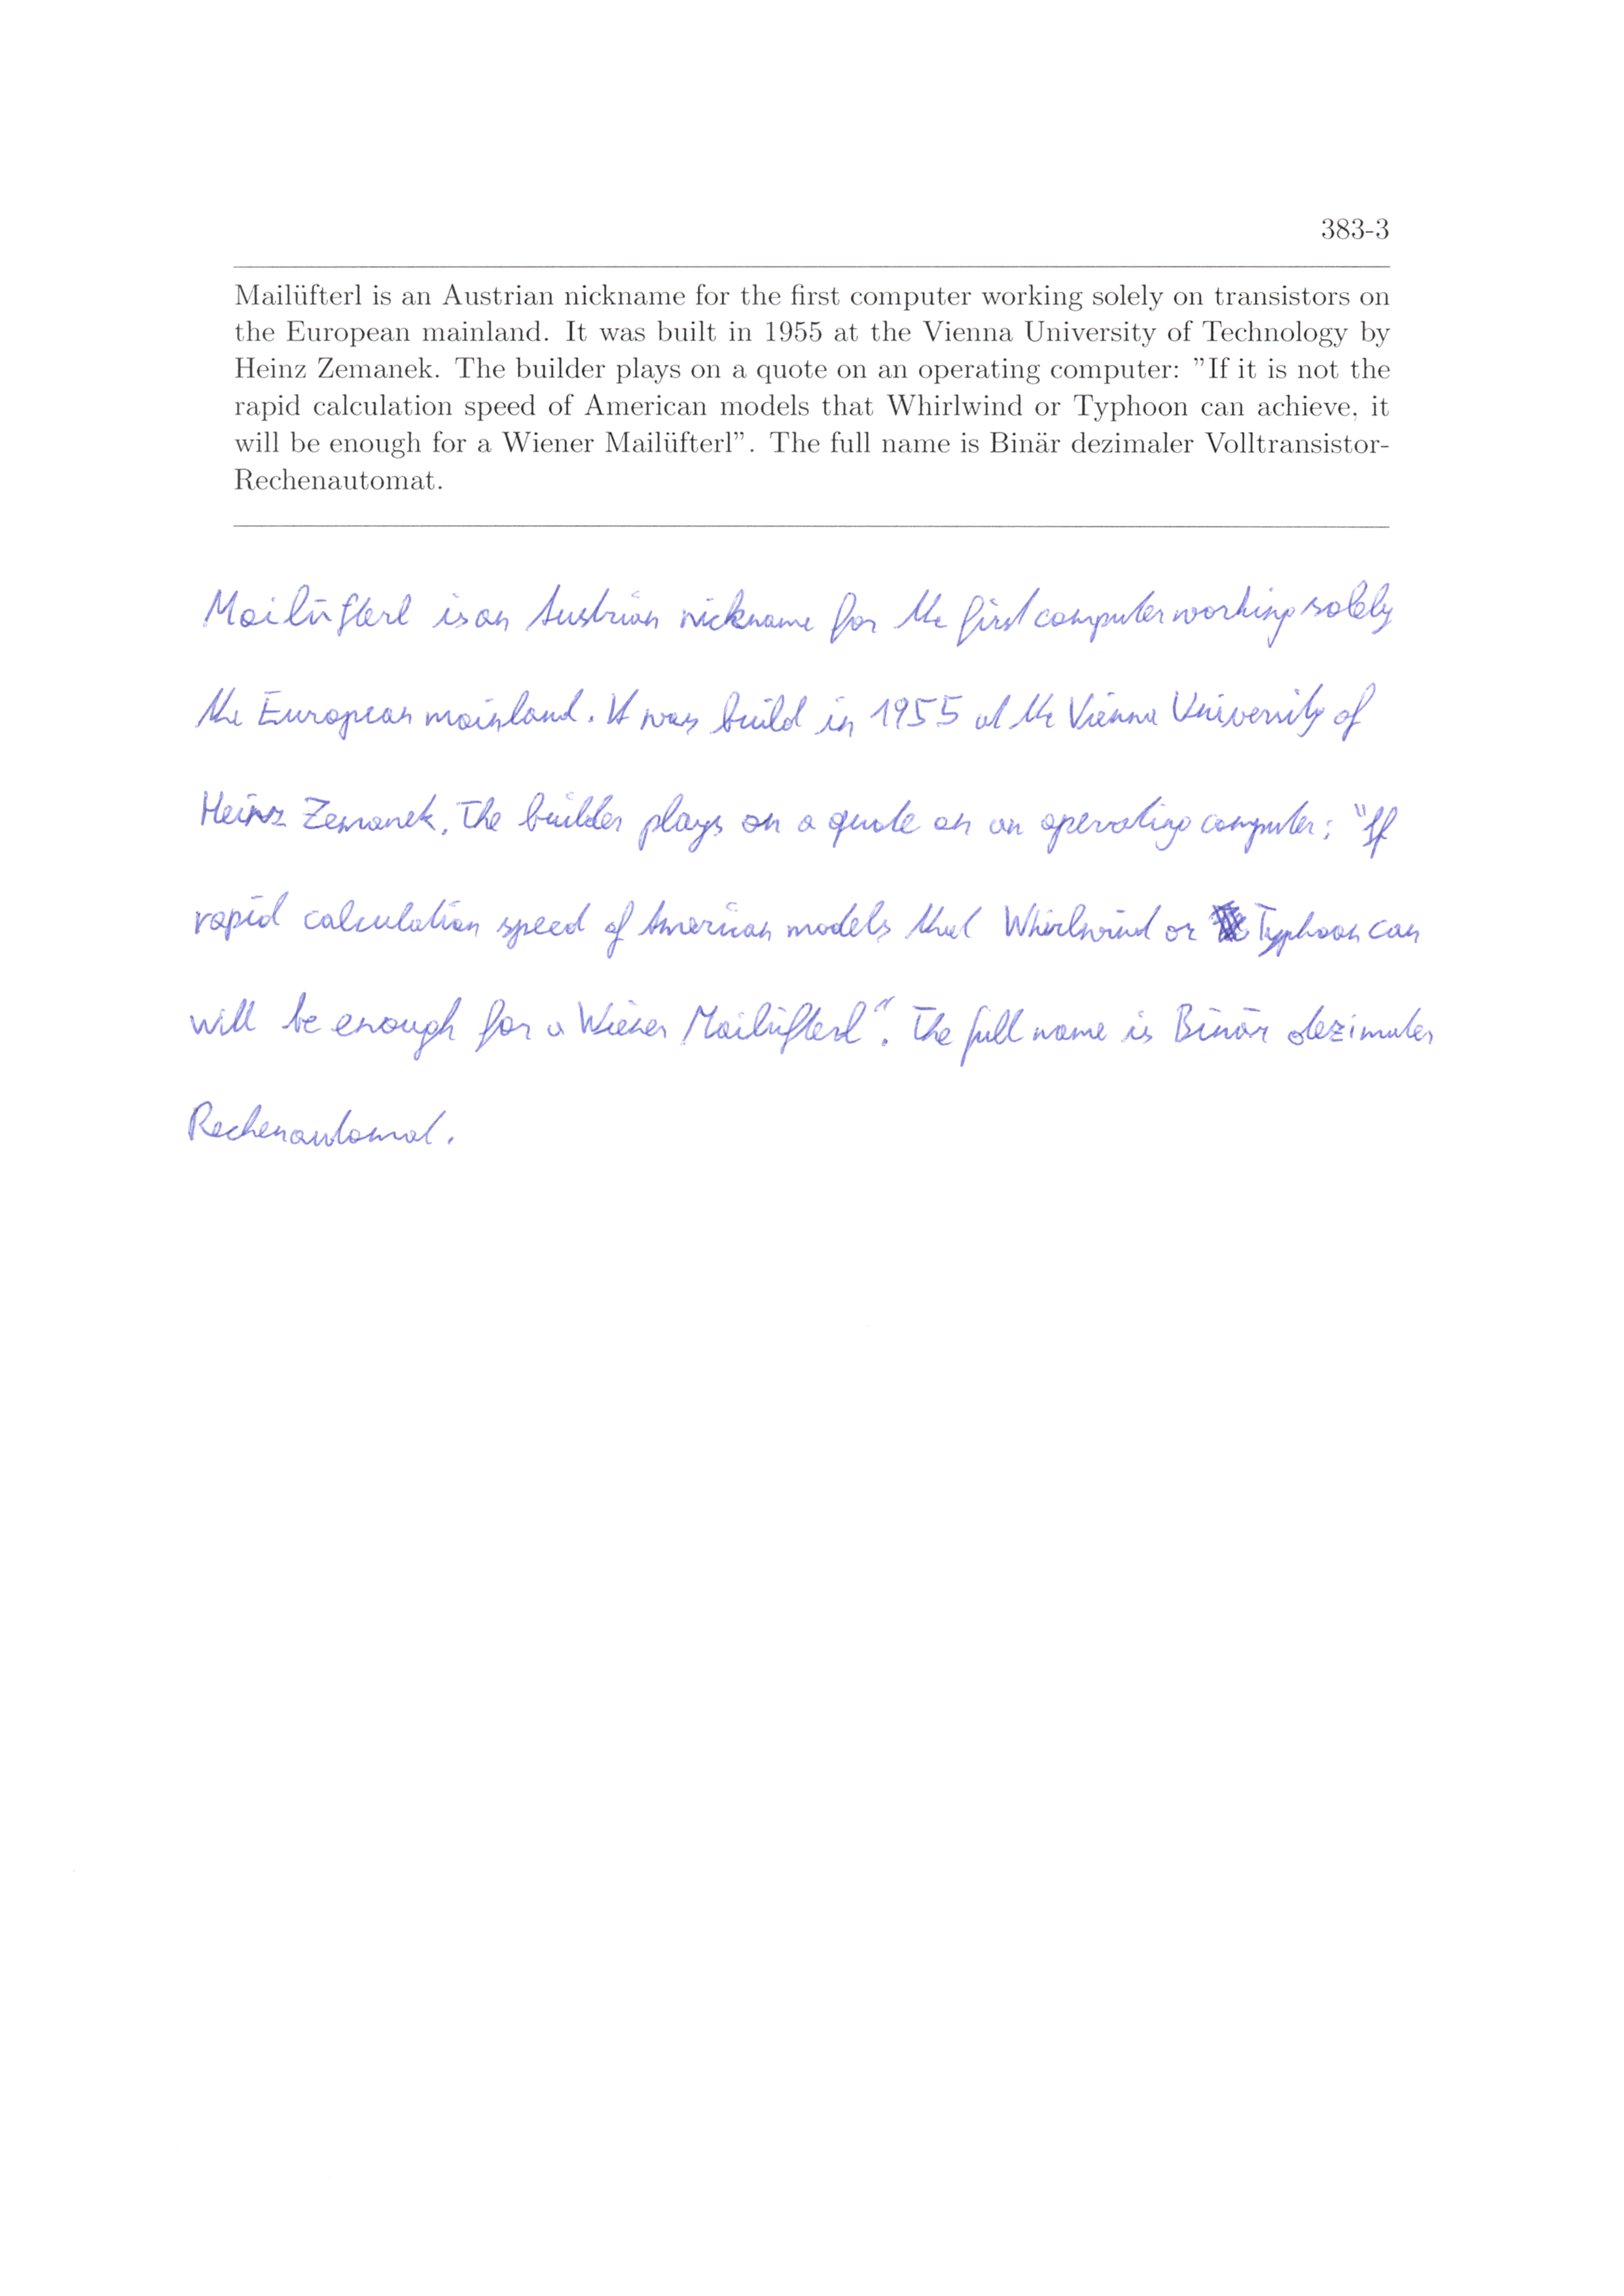 383-3
Mailüfterl is an Austrian nickname for the first computer working solely on transistors on
the European mainland. It was built in 1955 at the Vienna University of Technology by
Heinz Zemanek. The builder plays on a quote on an operating computer: ”If it is not the
rapid calculation speed of American models that Whirlwind or Typhoon can achieve, it
will be enough for a Wiener Mailüfterl”. The full name is Binär dezimaler Volltransistor-
Rechenautomat.
Mailüfterl is an Austrian nickname for the first computer working solely
the European mainland. It was build in 1955 at the Vienna University of
Heinz Zemanek. The builder plays on a quote on an operating computer: "If
rapid calculation speed of American models that Whirlwind or Typhoon can
will be enough for a Wiener Mailüfterl". The full name is Binär dezimaler
Rechenautomat.